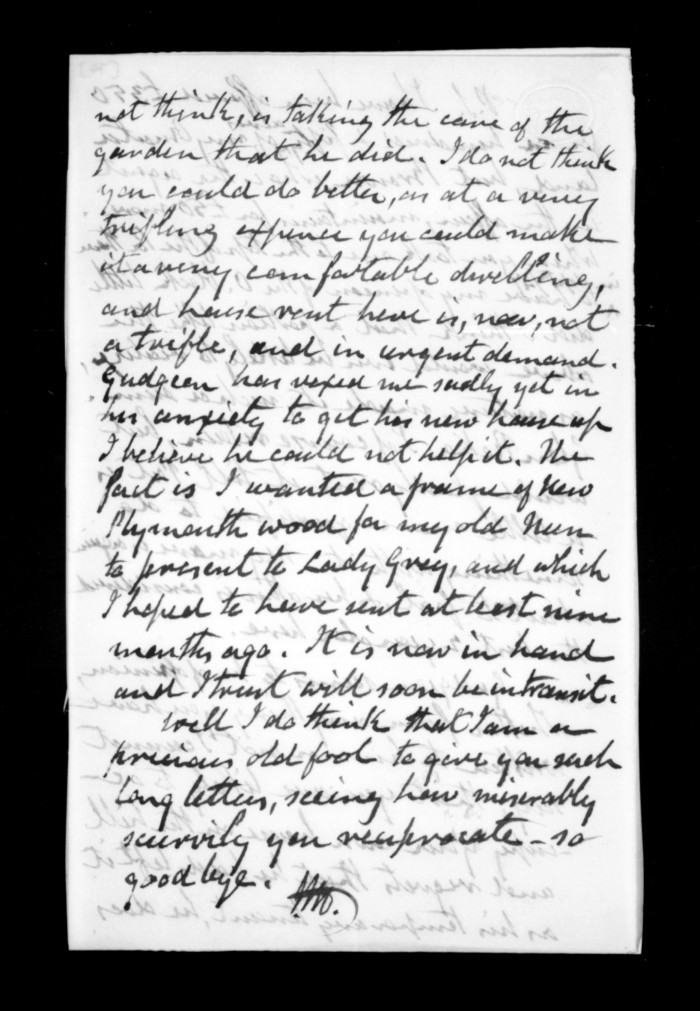 not think, is taking the care of the
garden that he did. I do not think
you could do better, as at a very
trifling expence you could make
it a very comfortable dwelling,
and house rent here is, now, not
a trifle, and in urgent demand.
Gudgeon has vexed me sadly yet in
his anxiety to get his new house up
I believe he could not help it. The
fact is I wanted a frame of New
Plymouth wood for my old Nun
to present to Lady Grey, and which
I hoped to have sent at least nine
months ago. It is now in hand
and I trust will soon be in transit.
Well I do think that I am a
precious old fool to give you such
long letters, seeing how miserably
scurvily you reciprocate - so
good bye.